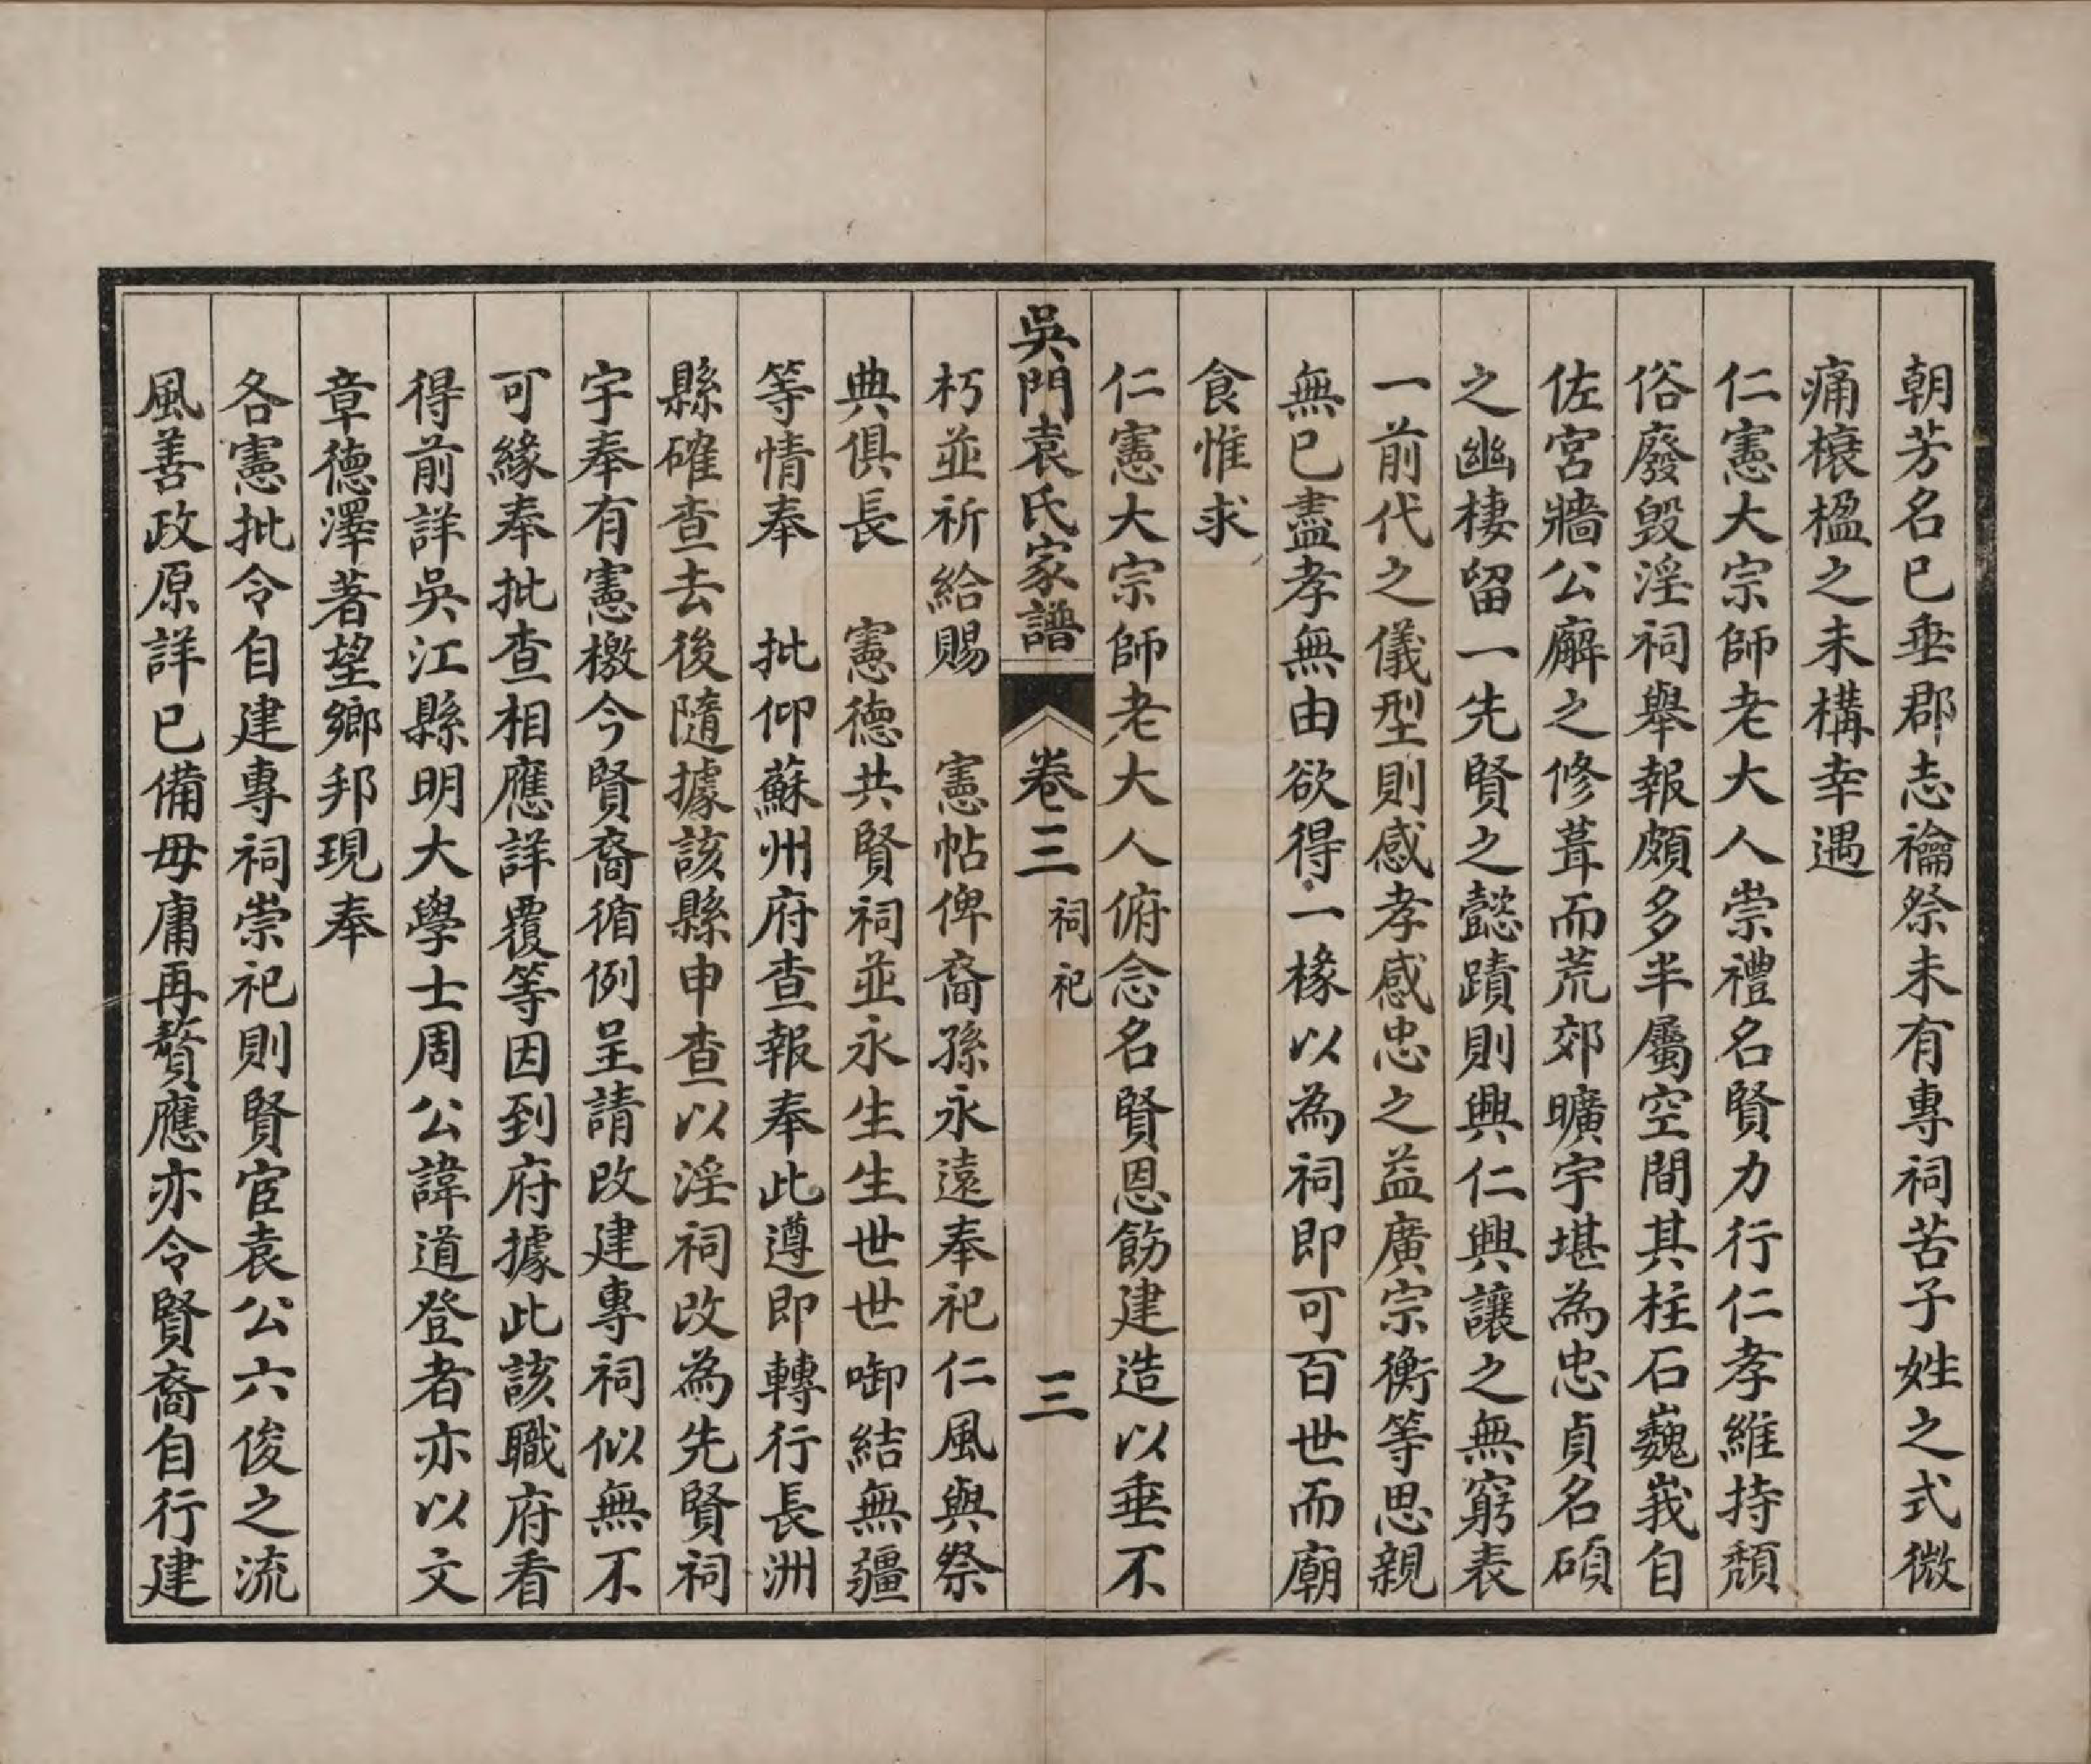 朝芳名已垂郡志禴祭未有專祠苦子姓之式微
痛榱楹之未構幸遇
仁憲大宗師老大人崇禮名賢力行仁孝維持頹
俗廢毀淫祠舉報頗多半屬空間其柱石巍峩自
佐宮牆公廨之修葺而荒郊曠宇堪為忠貞名碩
之幽棲留一先賢之懿蹟則興仁興讓之無窮表
一前代之儀型則感孝感忠之益廣宗衡等思親
無已盡孝無由欲得一椽以為祠即可百世而廟
食惟求
仁憲大宗師老大人俯念名賢恩飭建造以垂不
吳門袁氏家譜 卷三 祠祀 三
朽並祈給賜 憲帖俾裔孫永遠奉祀仁風與祭
典俱長 憲德共賢祠並永生生世世啣結無疆
等情奉 批仰蘇州府查報奉此遵即轉行長洲
縣確查去後隨據該縣申查以淫祠改為先賢祠
宇奉有憲檄今賢裔循例呈請改建專祠似無不
可緣奉批查相應詳覆等因到府據此該職府看
得前詳吳江縣明大學士周公諱道登者亦以文
章德澤著望鄉邦現奉
各憲批令自建專祠崇祀則賢宦袁公六俊之流
風善政原詳已備毋庸再贅應亦令賢裔自行建